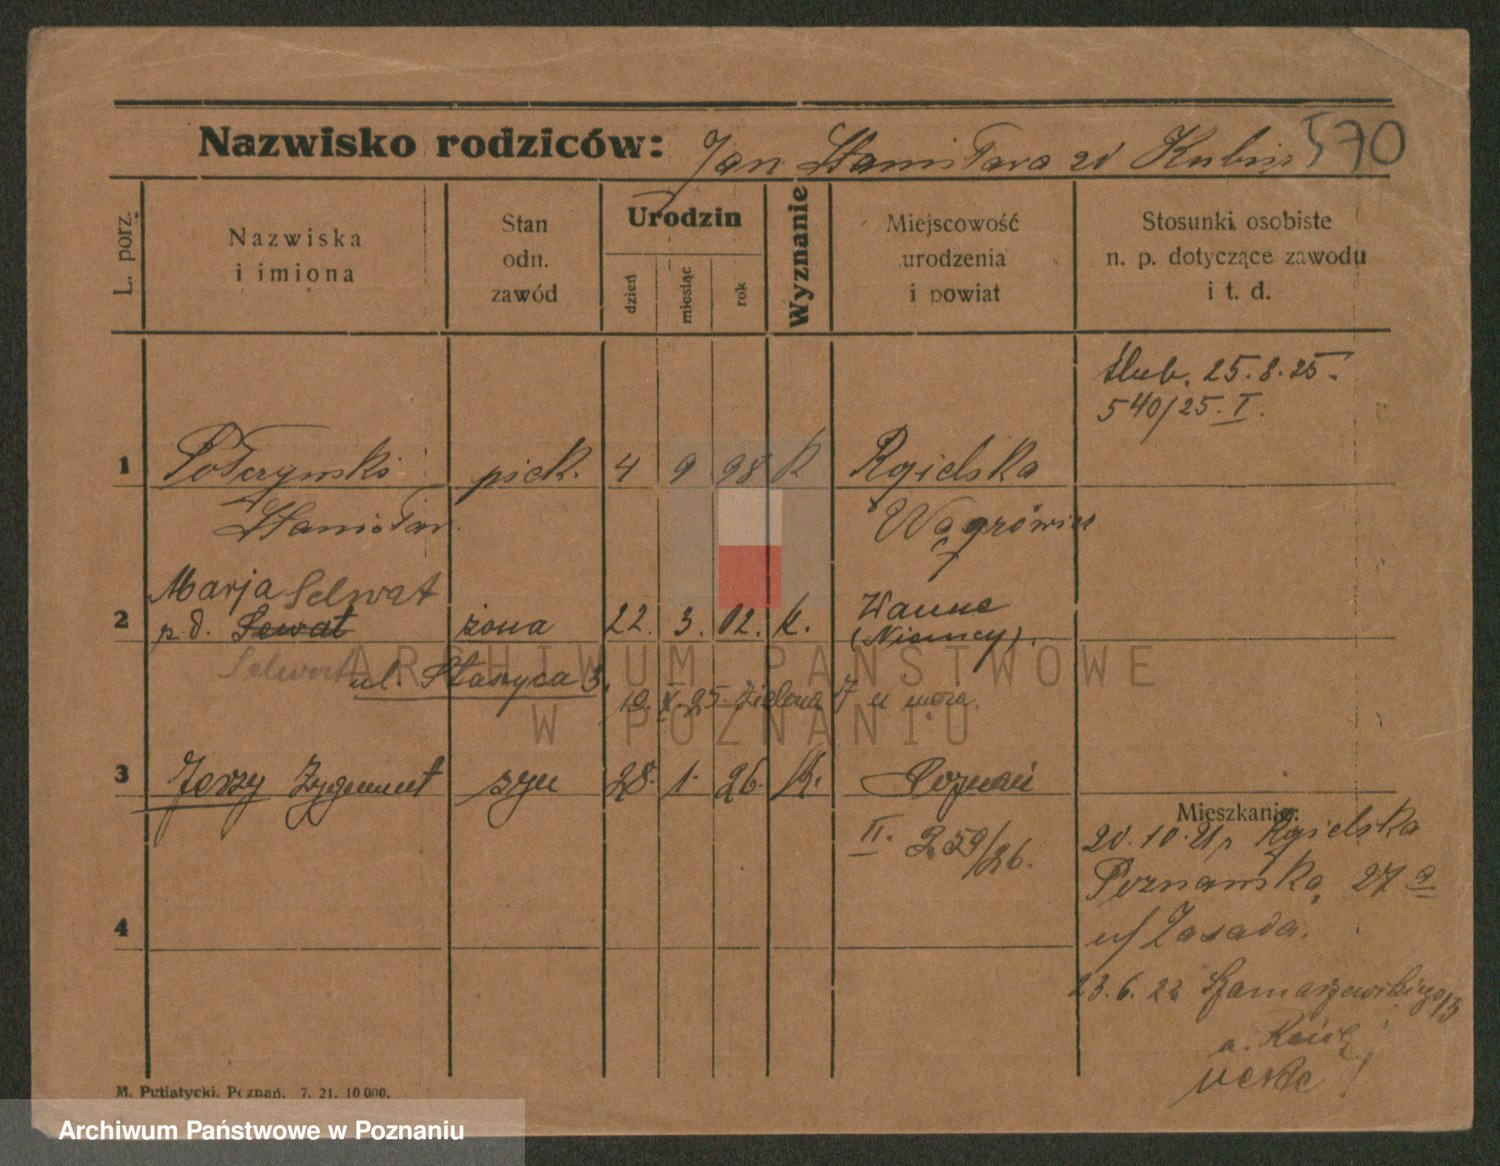 570
Nazwisko rodziców: Jan Stanisława zd
L. porz.
Nazwiska
i imiona
Stan
odn.
zawód
Urodzin
dzień
miesiąc
rok
Wyznanie
Miejscowość
urodzenia
i powiat
Stosunki osobiste
n. p. dotyczące zawodu
i t. d.
Ślub. 25.8.25.
540/25. I.
1 piek. 4 9 98 K Rgielska
Stanisław. Wągrówiec
Marja Selwat
2 p. d. Sewat żona 22. 3. 02. K. Wanne
(Niemcy).
Selwat
ul. Staszyca 3.
10. X. 25 Zielona 7 u
ARCHIWUM PAŃSTWOWE
W POZNANIU
3 Jerzy Zygmunt syn 28. 1. 26. K. Poznań
II. 259/26.
Mieszkanie:
20.10.21 Rgielska
Poznańska 27 a
u/ Zasada.
4
23.6.22
M. Putiatycki, Poznań. 7. 21. 10 000.
Archiwum Państwowe w Poznaniu